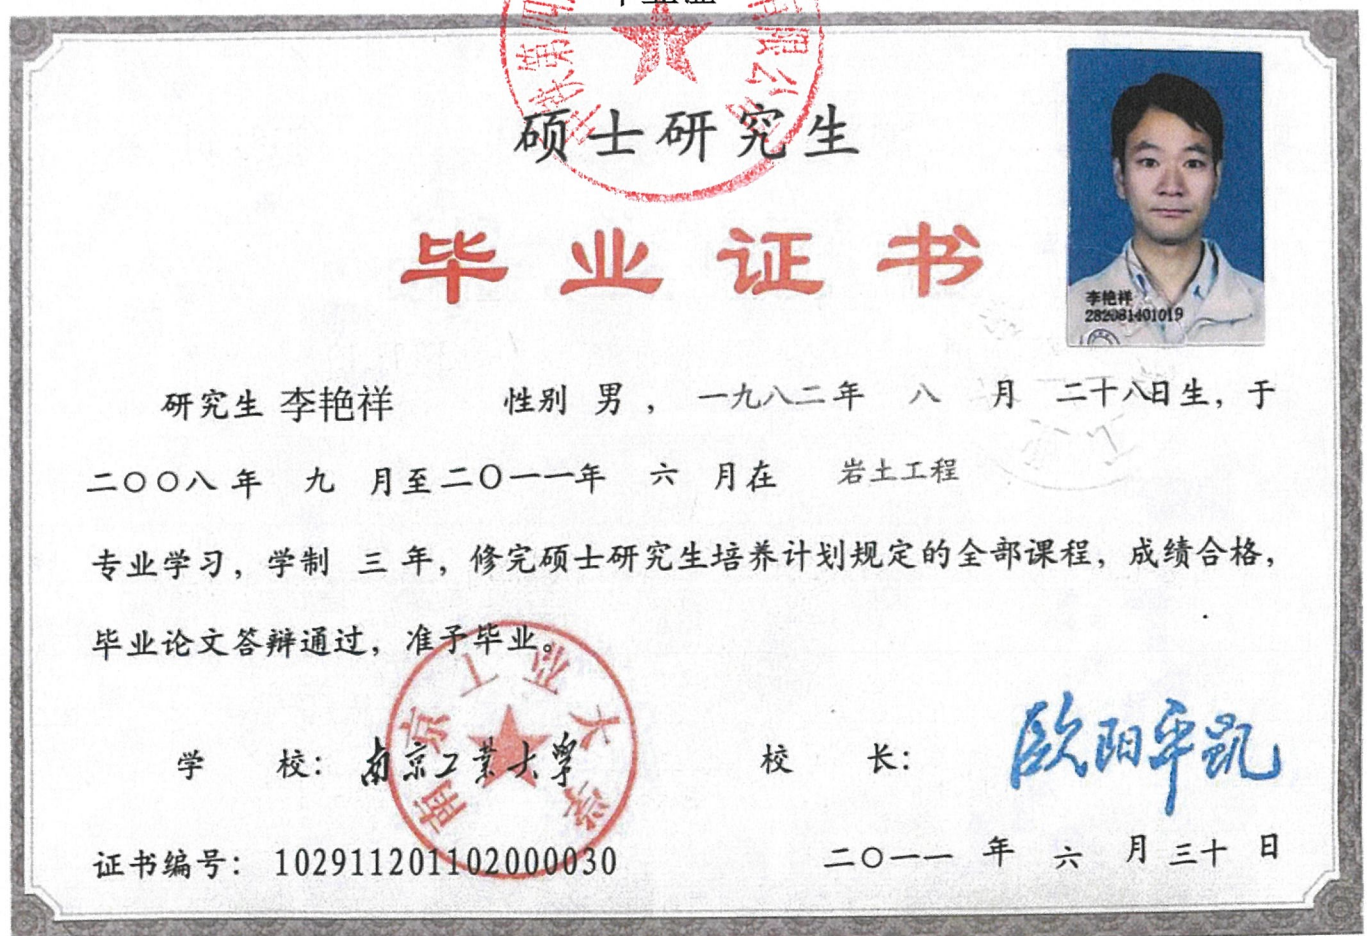 硕士研究生
毕业证书
李艳祥
282081401019
研究生 李艳祥 性别 男 , 一九八二年 八 月 二十八日生, 于
二〇〇八年 九 月至二〇一一年 六 月在 岩土工程
专业学习, 学制 三 年, 修完硕士研究生培养计划规定的全部课程, 成绩合格,
毕业论文答辩通过, 准予毕业。
学 校: 南京工业大学
南京工业大学
校 长: 欧阳平凯
证书编号: 102911201102000030
二〇一一 年 六 月 三十 日